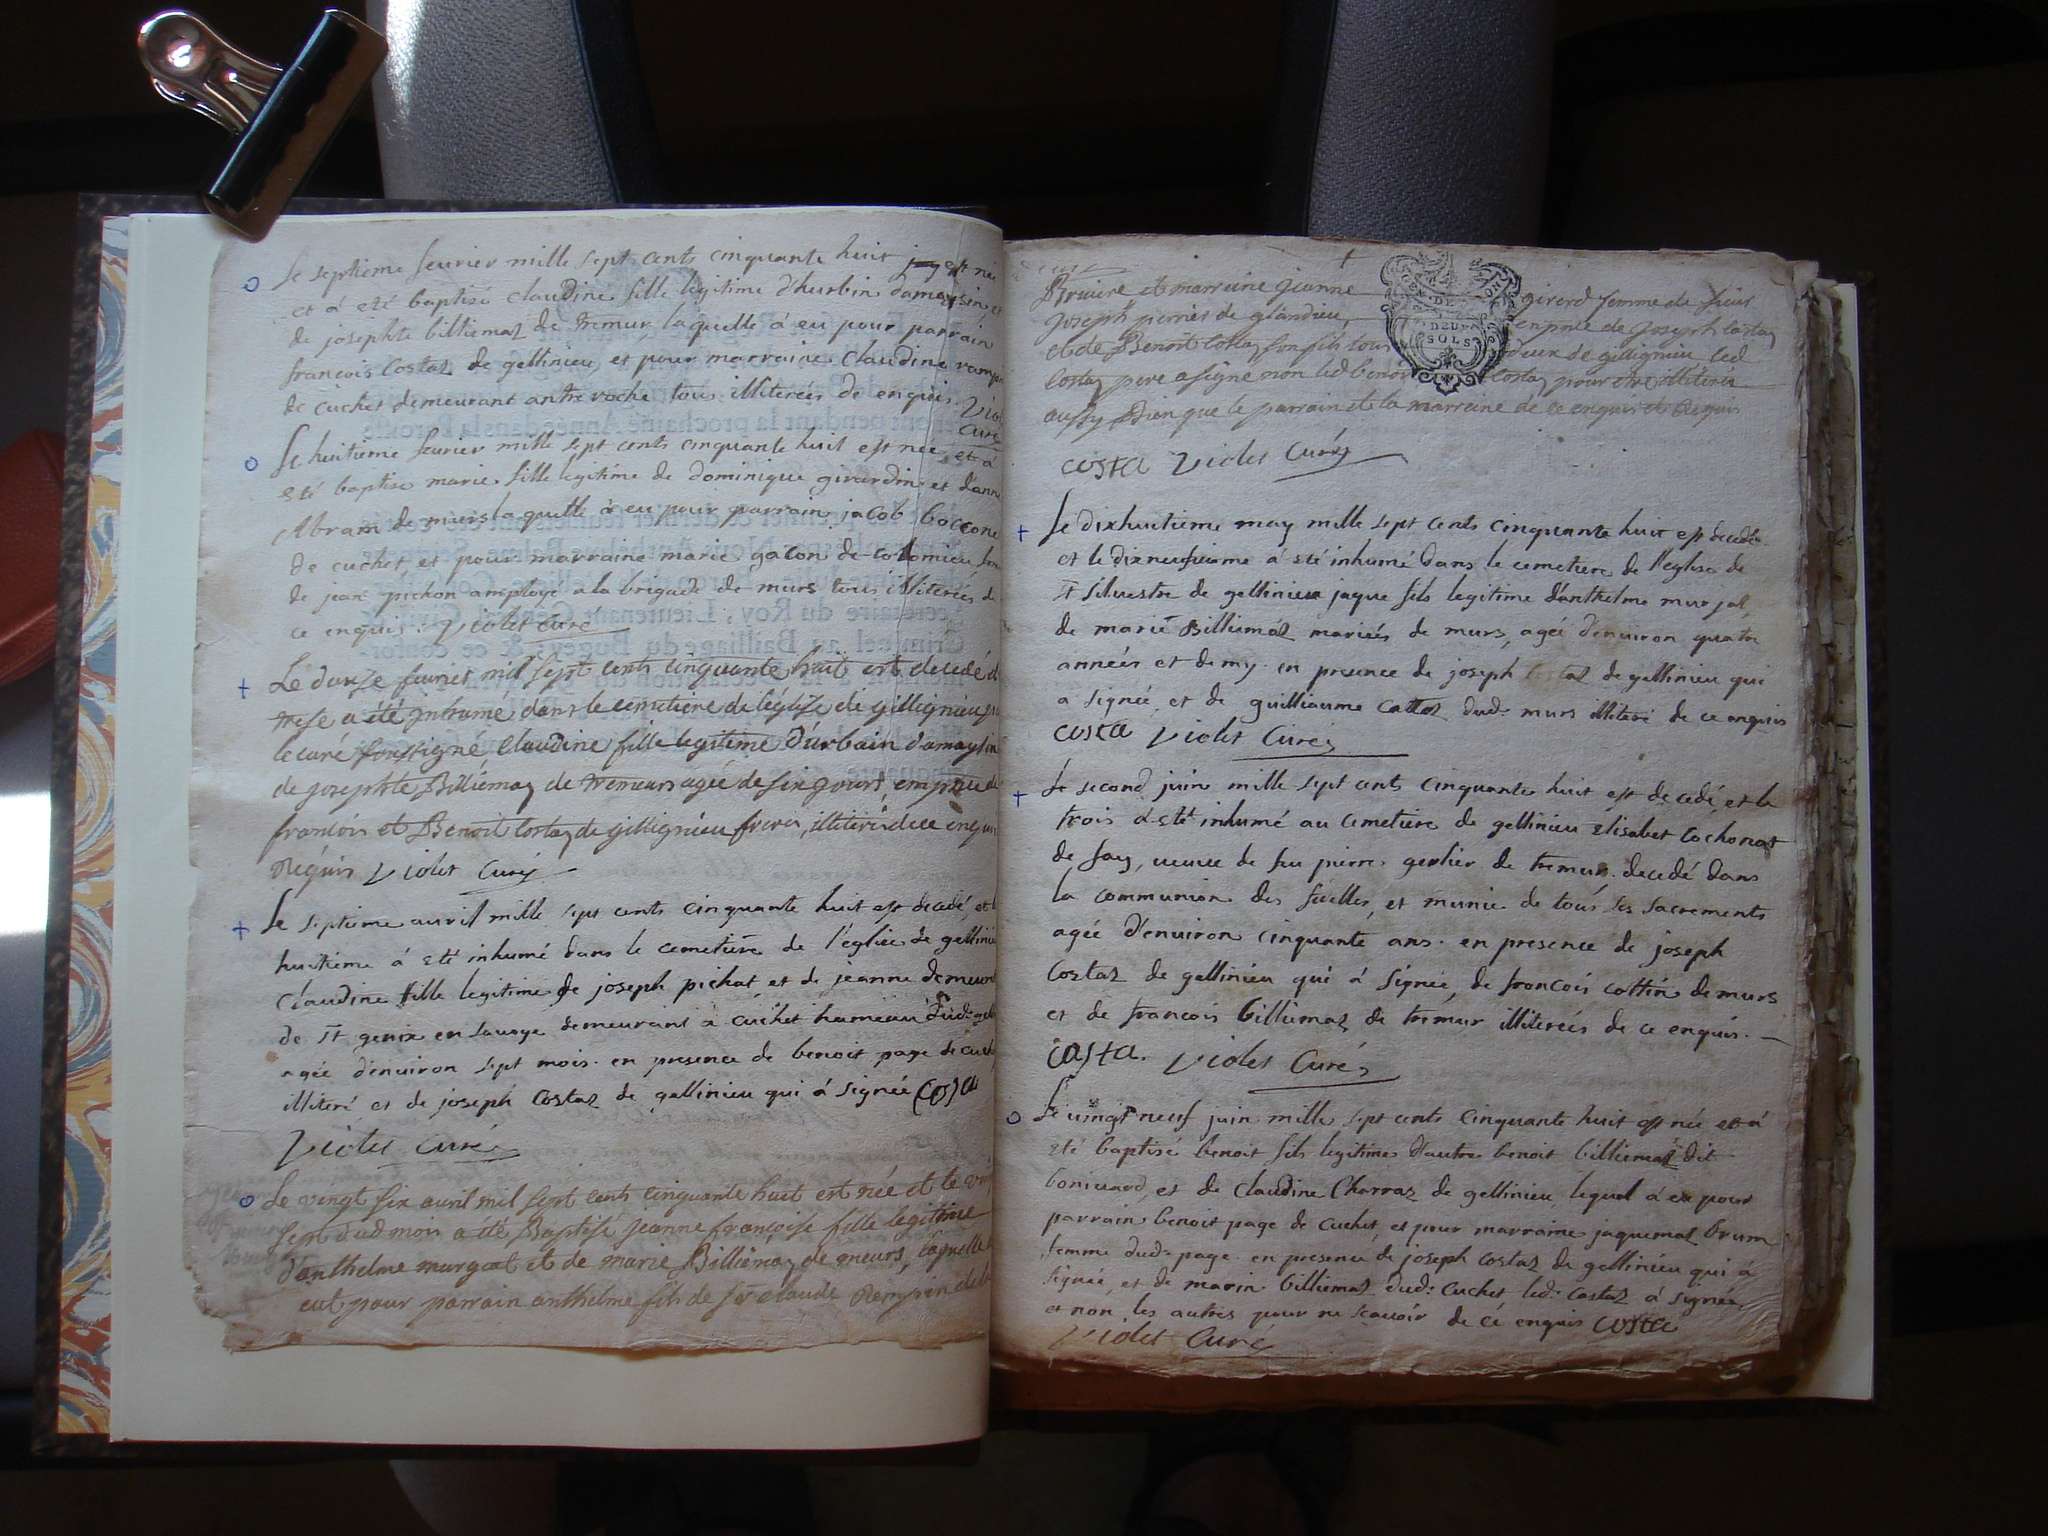 Le septieme feurier mille sept cents cinquante huit est née
et à eté baptisé claudine fille legitime d'hurbin damaysin et
de josephte billiemaz de tremur, laquelle à eu pour parrain
francois Costaz de gellinieu, et pour marraine claudine
de cuchet demeurant antre roche tous illiterés de enquis. Viol
Curé
Le huitieme feurier mille sept cents cinquante huit est née et à
eté baptise marie fille legitime de dominique girardin et d'anne
Abram de murs laquelle à eu pour parrain jacob boccone
de cuchet et pour marraine marie gacon de colomieu
de jean pichon amployé a la brigade de murs tous illiterés de
ce enquis. Violet curé
Le douze feurier mil sept cents cinquante huit est decedé et
treise a été inhumé dans le cemetiere de l'églize de gillignieu
le curé soussigné Claudine fille legitime d'urbain damaysin
de josephte Billiémaz de tremeurs agée de six jours, en pnce de
francois et Benoit Costaz de gillignieu freres, illiterés de ce enquis
Réquis Violet Curé
Le septieme auril mille sept cents cinquante huit est decedé, et le
huitieme à eté inhumé dans le cemetiere de l'église de gellinieu
Claudine fille legitime de joseph pichat et de jeanne demeure
de St genix en sauoye demeurant a cuchet hameau dud: gell
agée d'enuiron sept mois. en presence de benoit page de cuchet
illiteré et de joseph Costaz de gellinieu qui à signée Costa
Violet curé
Le vingt six auril mil sept cents cinquante huit est née et le vin
sept dud mois a été Baptisé jeanne françoise fille legitime
d'anthelme murgat et de marie Billiémaz de meurs, laquelle
eut pour parrain anthelme fils de feu claude
Bruiere et marreine jeanne girerd femme de sieur
joseph perrier de glandieu, en pnce de joseph Costaz
et de Benoit Costaz son fils tous deux de gillignieu led
Costaz pere a signé non led benoit Costaz pour etre illiteré
aussy Bien que le parrain et la marreine de ce enquis et Requis
DEUX
SOLS
costa Violet Curé
Le dixhuitieme may mille sept cents cinquante huit est decedé
et le dixneufuieme à eté inhumé dans le cemetiere de l'eglise de
St siluestre de gellinieu jaque fils legitime d'anthelme murjat,
de marie Billiemaz mariés de murs, agée d'enuiron quatre
années et demy. en presence de joseph Costaz de gellinieu qui
a signée, et de guilliaume Cattoz dud: murs illiteré de ce enquis
costa Violet Curé
Le second juin mille sept cents cinquante huit est decedé, et le
trois à eté inhumé au cemetiere de gellinieu elisabet cochonat
de fay, ueuue de feu pierre gerlier de tremur. decedé dans
la communion des fidelles, et munie de tous ses sacrements
agée d'enuiron cinquante ans. en presence de joseph
Costaz de gellinieu qui à signée, de francois cottin de murs
et de francois billiemaz de tremur illiterés de ce enquis.
costa. Violet Curé
Le uingt neuf juin mille sept cents cinquante huit est née et à
eté baptisé benoit fils legitime d'autre benoit billiemaz dit
boniuard, et de claudine Charraz de gellinieu, lequel à eu pour
parrain benoit page de cuchet, et pour marraine jaquemaz brum
femme dud: page. en presence de joseph costaz de gellinieu qui à
signée, et de marin billiemaz dud: cuchet led: costaz à signée,
et non les autres pour ne scauoir de cé enquis costa
Violet Curé